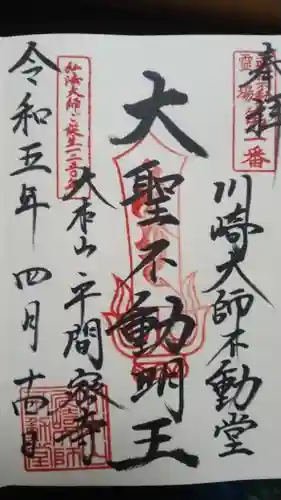 奉拝
川崎大師不動堂
大聖不動明王
大本山平間寺
令和五年四月十四日
弘法大師ご誕生一二五〇年
霊場
一番